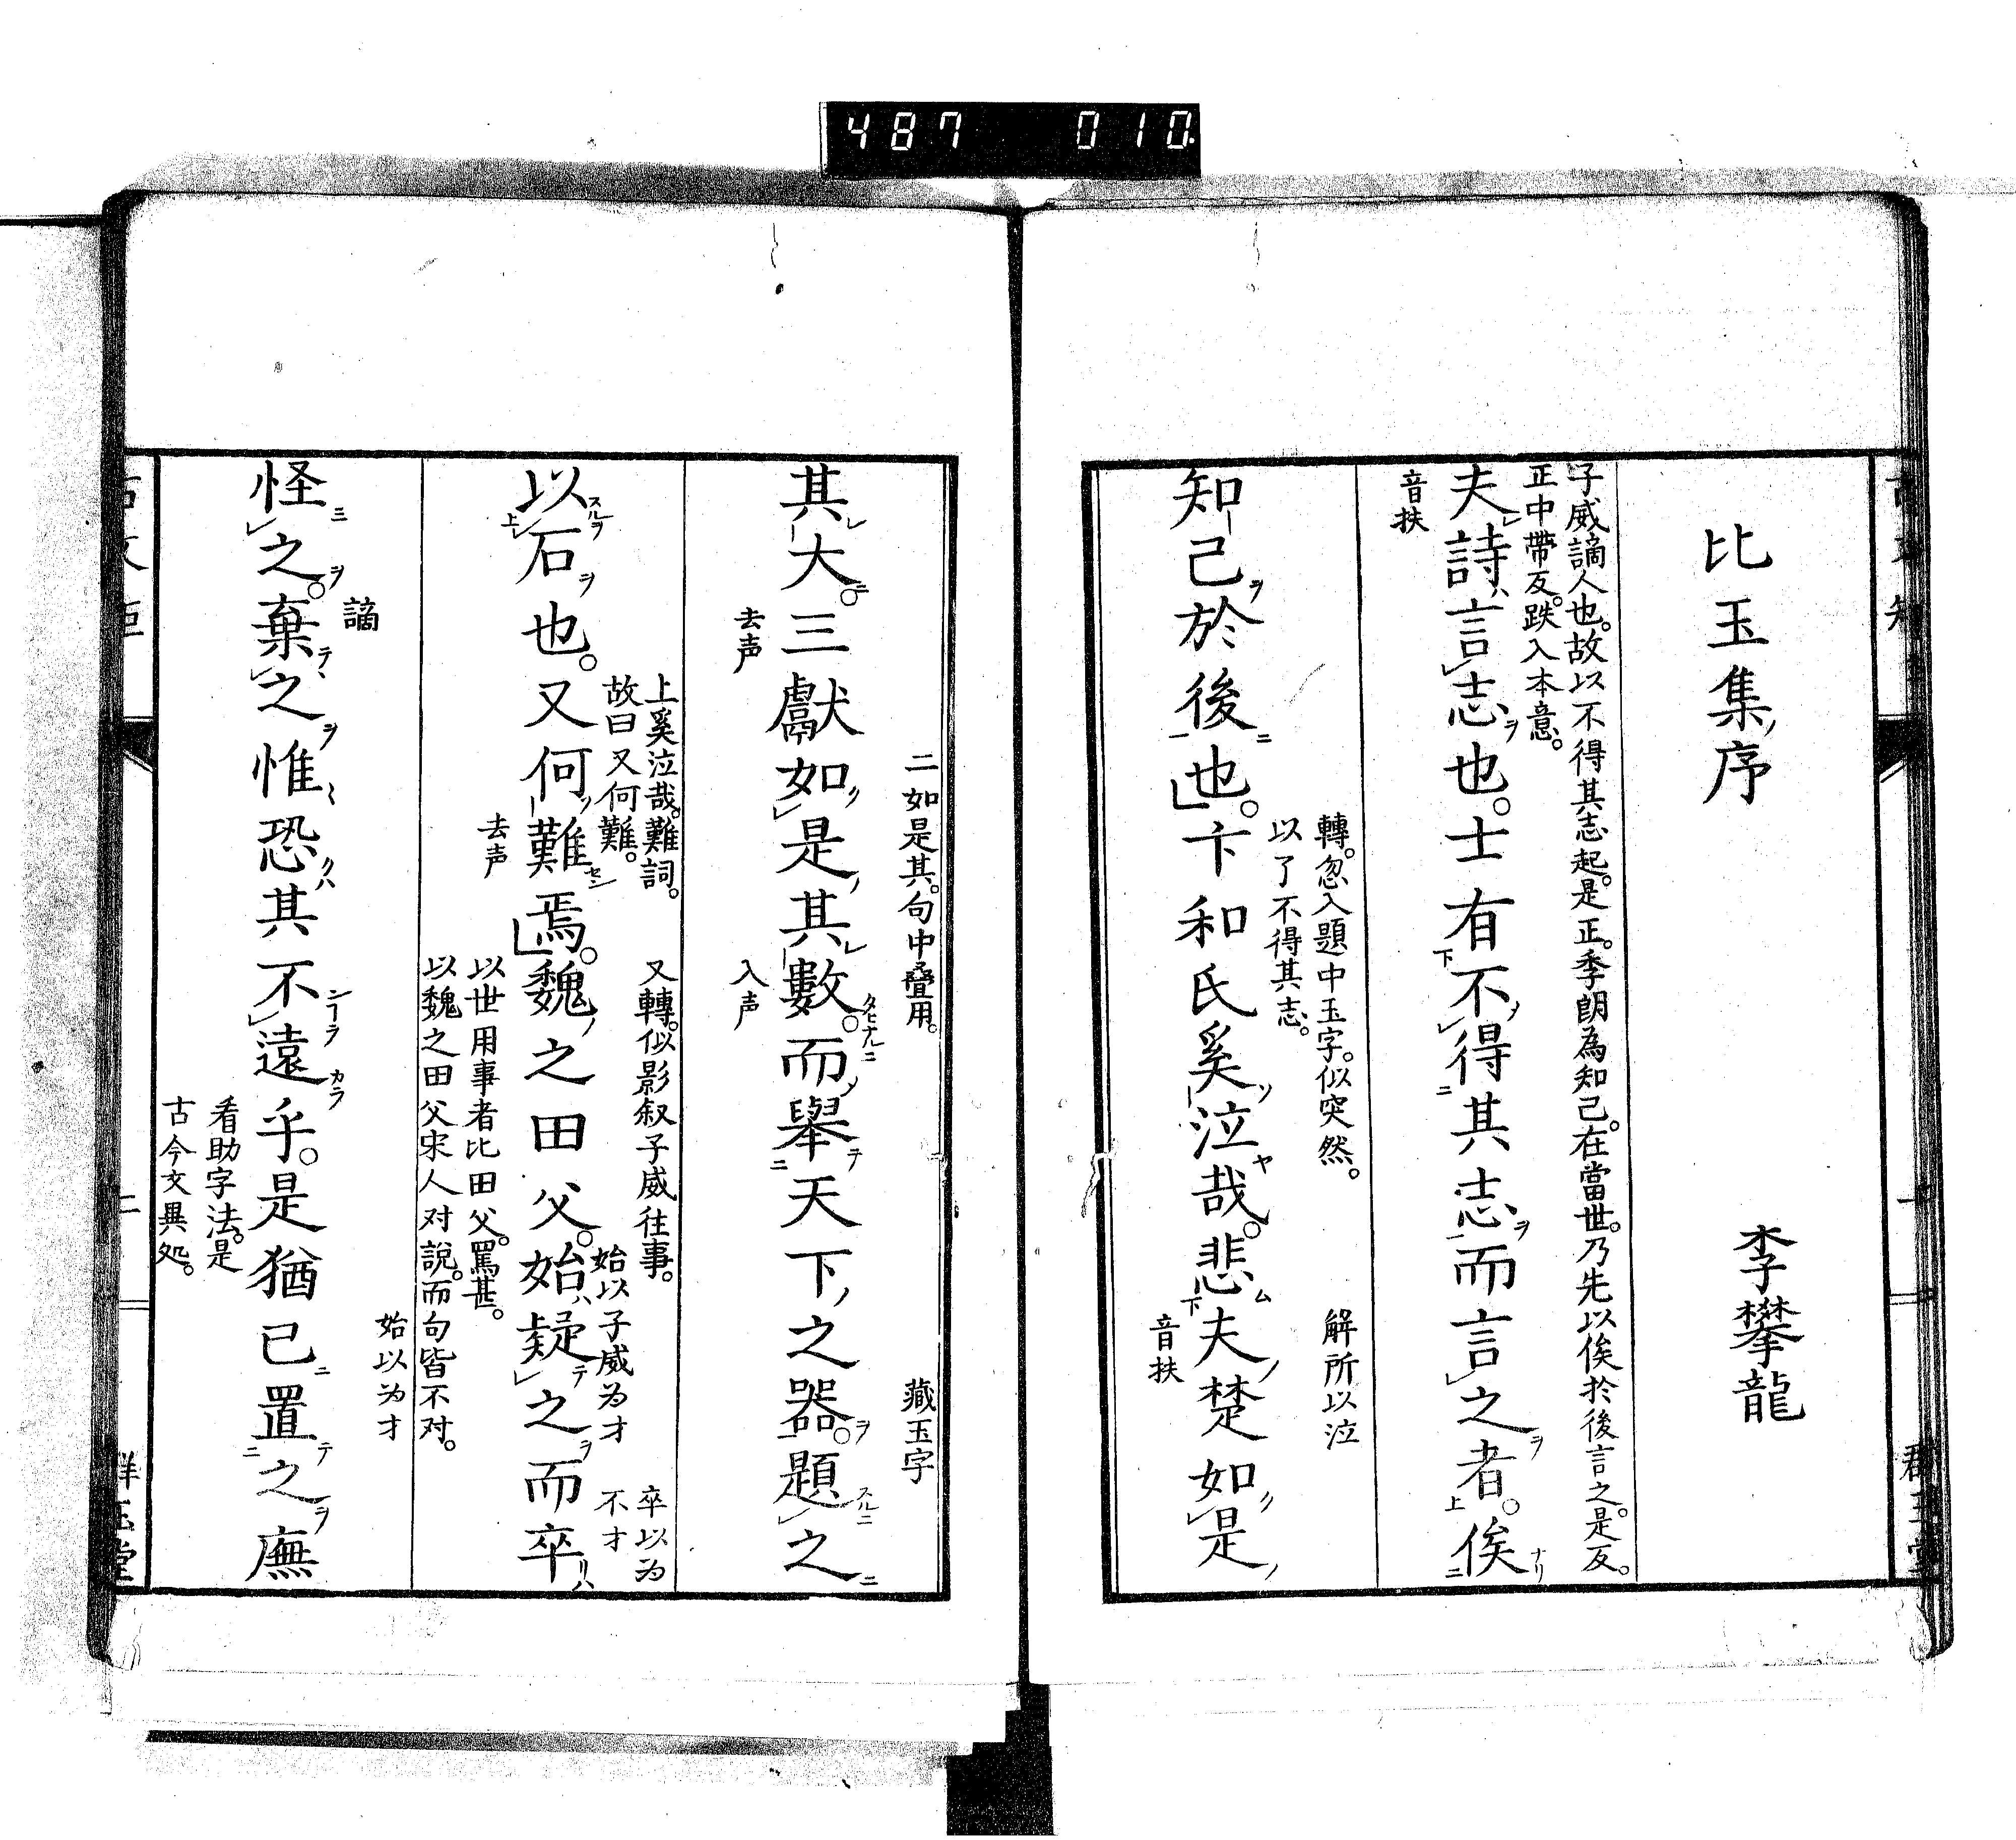 487 010
比玉集序
李攀龍
子威謫人也。故以不得其志起。是正。季朗為知己。在當世。乃先以俟於後言之。是反。
正中帶反。跌入本意。
夫詩言志也。士有不得其志而言之者。俟
音扶
轉。忽入題中玉字。似突然。
以了不得其志。
解所以泣
知己於後也。卞和氏奚泣哉。悲夫楚如是
音扶
二如是其。句中疊用。
藏玉字
其大。三獻如是其數。而舉天下之器。題之
去声
入声
上奚泣哉。難詞。
故曰又何難。
又轉。似影叙子威往事。
始以子威為才
卒以為
不才
以石也。又何難焉。魏之田父。始疑之而卒
去声
以世用事者比田父。罵甚。
以魏之田父宋人对說。而句皆不对。
始以为才
謫
怪之。棄之惟恐其不遠乎。是猶已置之廡
看助字法。是
古今文異処。